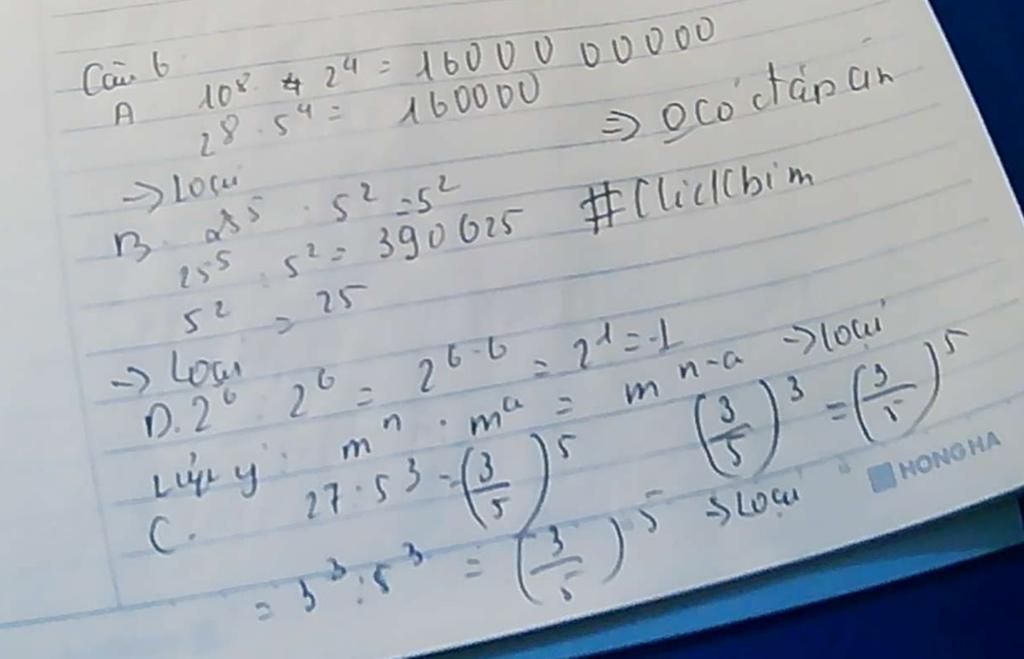 Câu 6
A 10⁸ . 2⁴ = 1600000000
2⁸ . 5⁴ = 160000
=> 0 có đáp án
→ Loại
B. 25⁵ : 5² = 5²
#Clickbim
25⁵ : 5² = 390625
5² = 25
→ Loại
D. 2⁶ : 2⁶ = 2⁶⁻⁶ = 2¹ = -1 → loại
Lưu ý : mⁿ . mᵃ = mⁿ⁻ᵃ
C. 27 : 5³ = (3/5)⁵ (3/5)³ = (3/5)⁵
= 3³ : 5³ = (3/5)⁵ → Loại
HONG HA